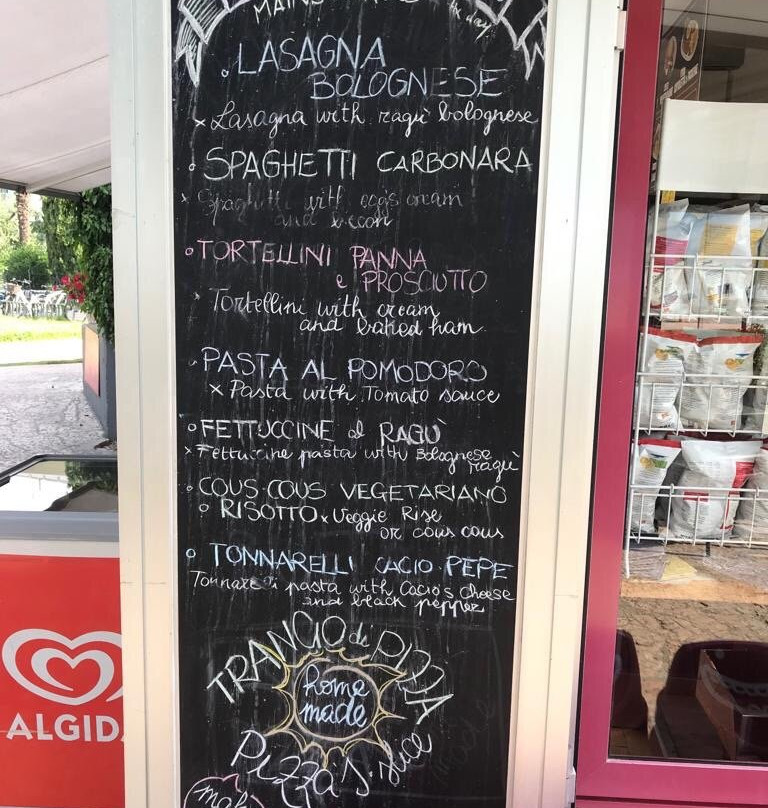 MAINS
the day
LASAGNA
BOLOGNESE
x Lasagna with ragù bolognese
SPAGHETTI CARBONARA
x Spaghetti with eggs cream
and becon
TORTELLINI PANNA
e PROSCIUTTO
x Tortellini with cream
and baked ham.
PASTA AL POMODORO
x Pasta with Tomato sauce
FETTUCCINE al RAGÙ
x Fettuccine pasta with Bolognese
ragù
COUS-COUS VEGETARIANO
o RISOTTO x Veggie Rise
or cous cous
TONNARELLI CACIO PEPE
Tonnarelli pasta with Cacio's cheese
and black pepper
TRANCIO di PIZZA
home
made
Pizza Slice
ALGIDA